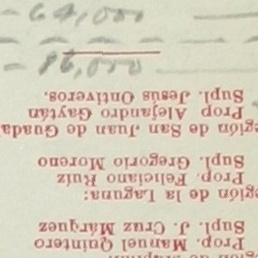 Prop. Manuel Quintero
Supl. J. Cruz Márquez
egión de la Laguna:
Prop. Feliciano Ruiz
Supl. Gregorio Moreno
egión de San Juan de Guada
Prop Alejandro Gaytán
Supl. Jesús Ontiveros.
64,000
16,000